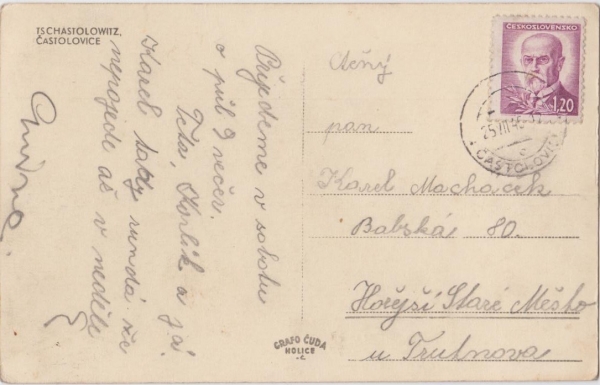 TSCHASTOLOWITZ,
ČASTOLOVICE
Přijdeme v sobotu
o půl 9 večer.
Teta, Karlík a já.
Karel tady rundá že
nepojede až v neděli
ctěný
pan
Karel Machaček
Babská 80.
Hořejší Staré Město
u Trutnova
ČESKOSLOVENSKO
1,20
ČASTOLOVICE
GRAFO ČUDA
HOLICE